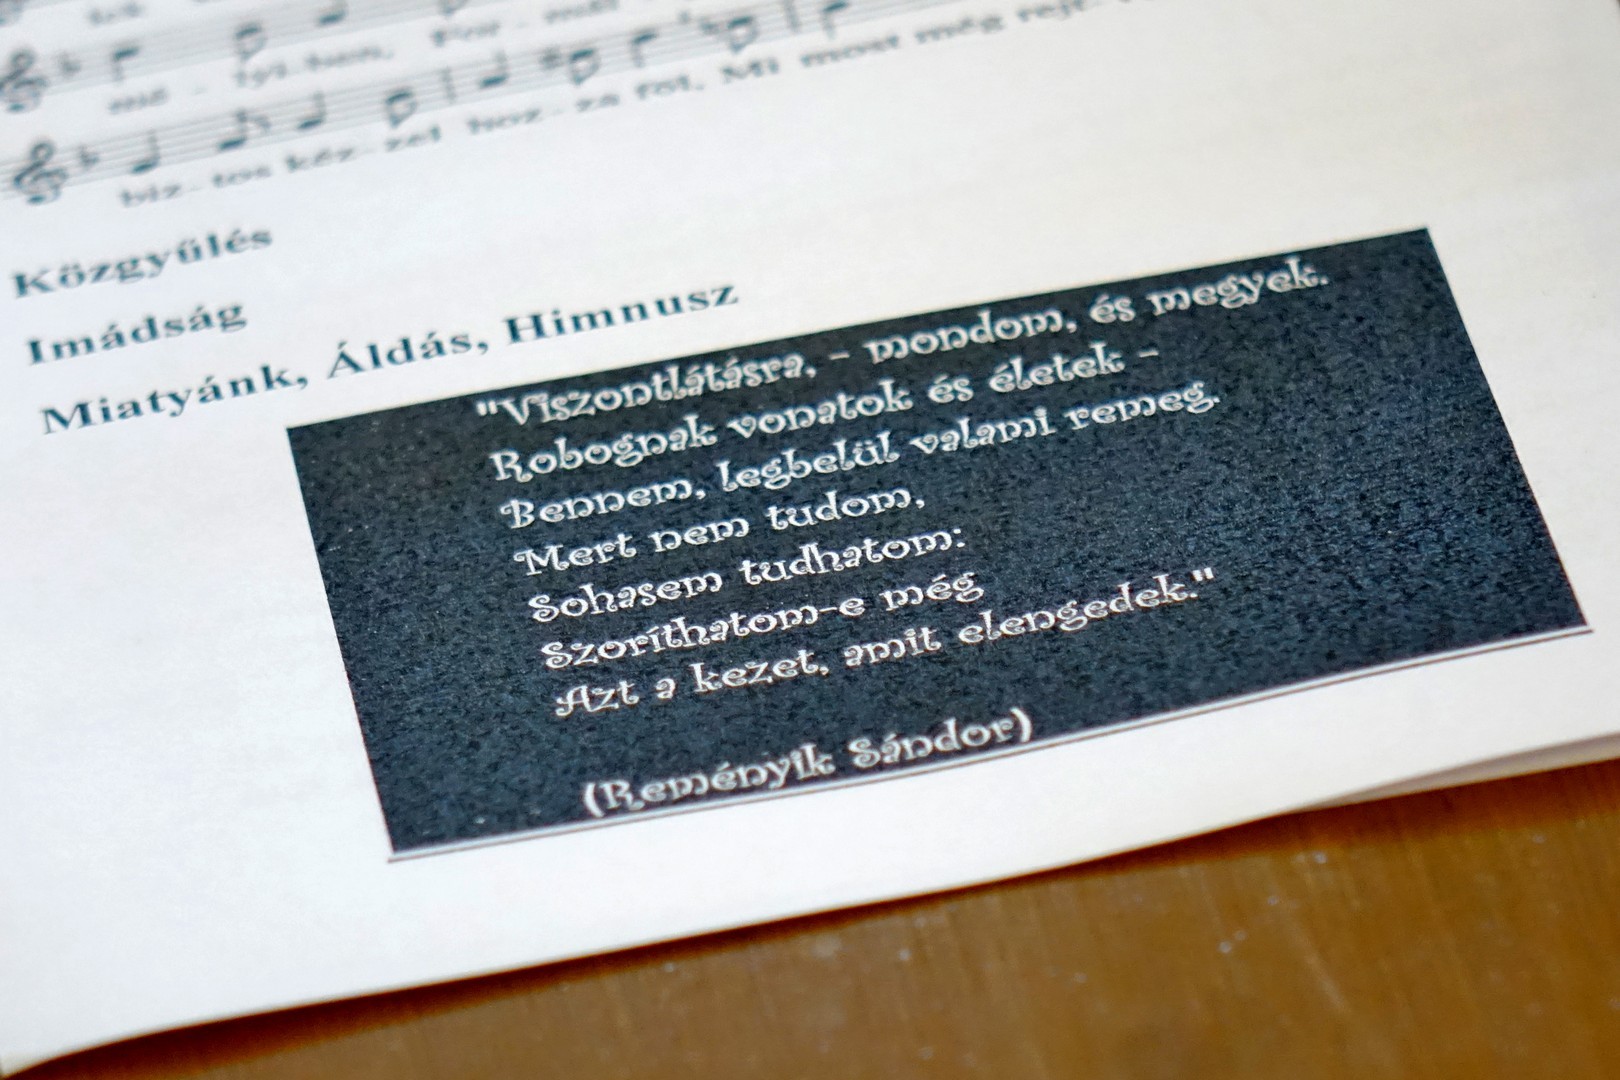 biz - tos kéz - zel hoz - za föl. Mi most még rejt-
Közgyűlés
Imádság
Miatyánk, Áldás, Himnusz
"Viszontlátásra, - mondom, és megyek.
Robognak vonatok és életek -
Bennem, legbelül valami remeg.
Mert nem tudom,
Sohasem tudhatom:
Szoríthatom-e még
Azt a kezet, amit elengedek."
(Reményik Sándor)